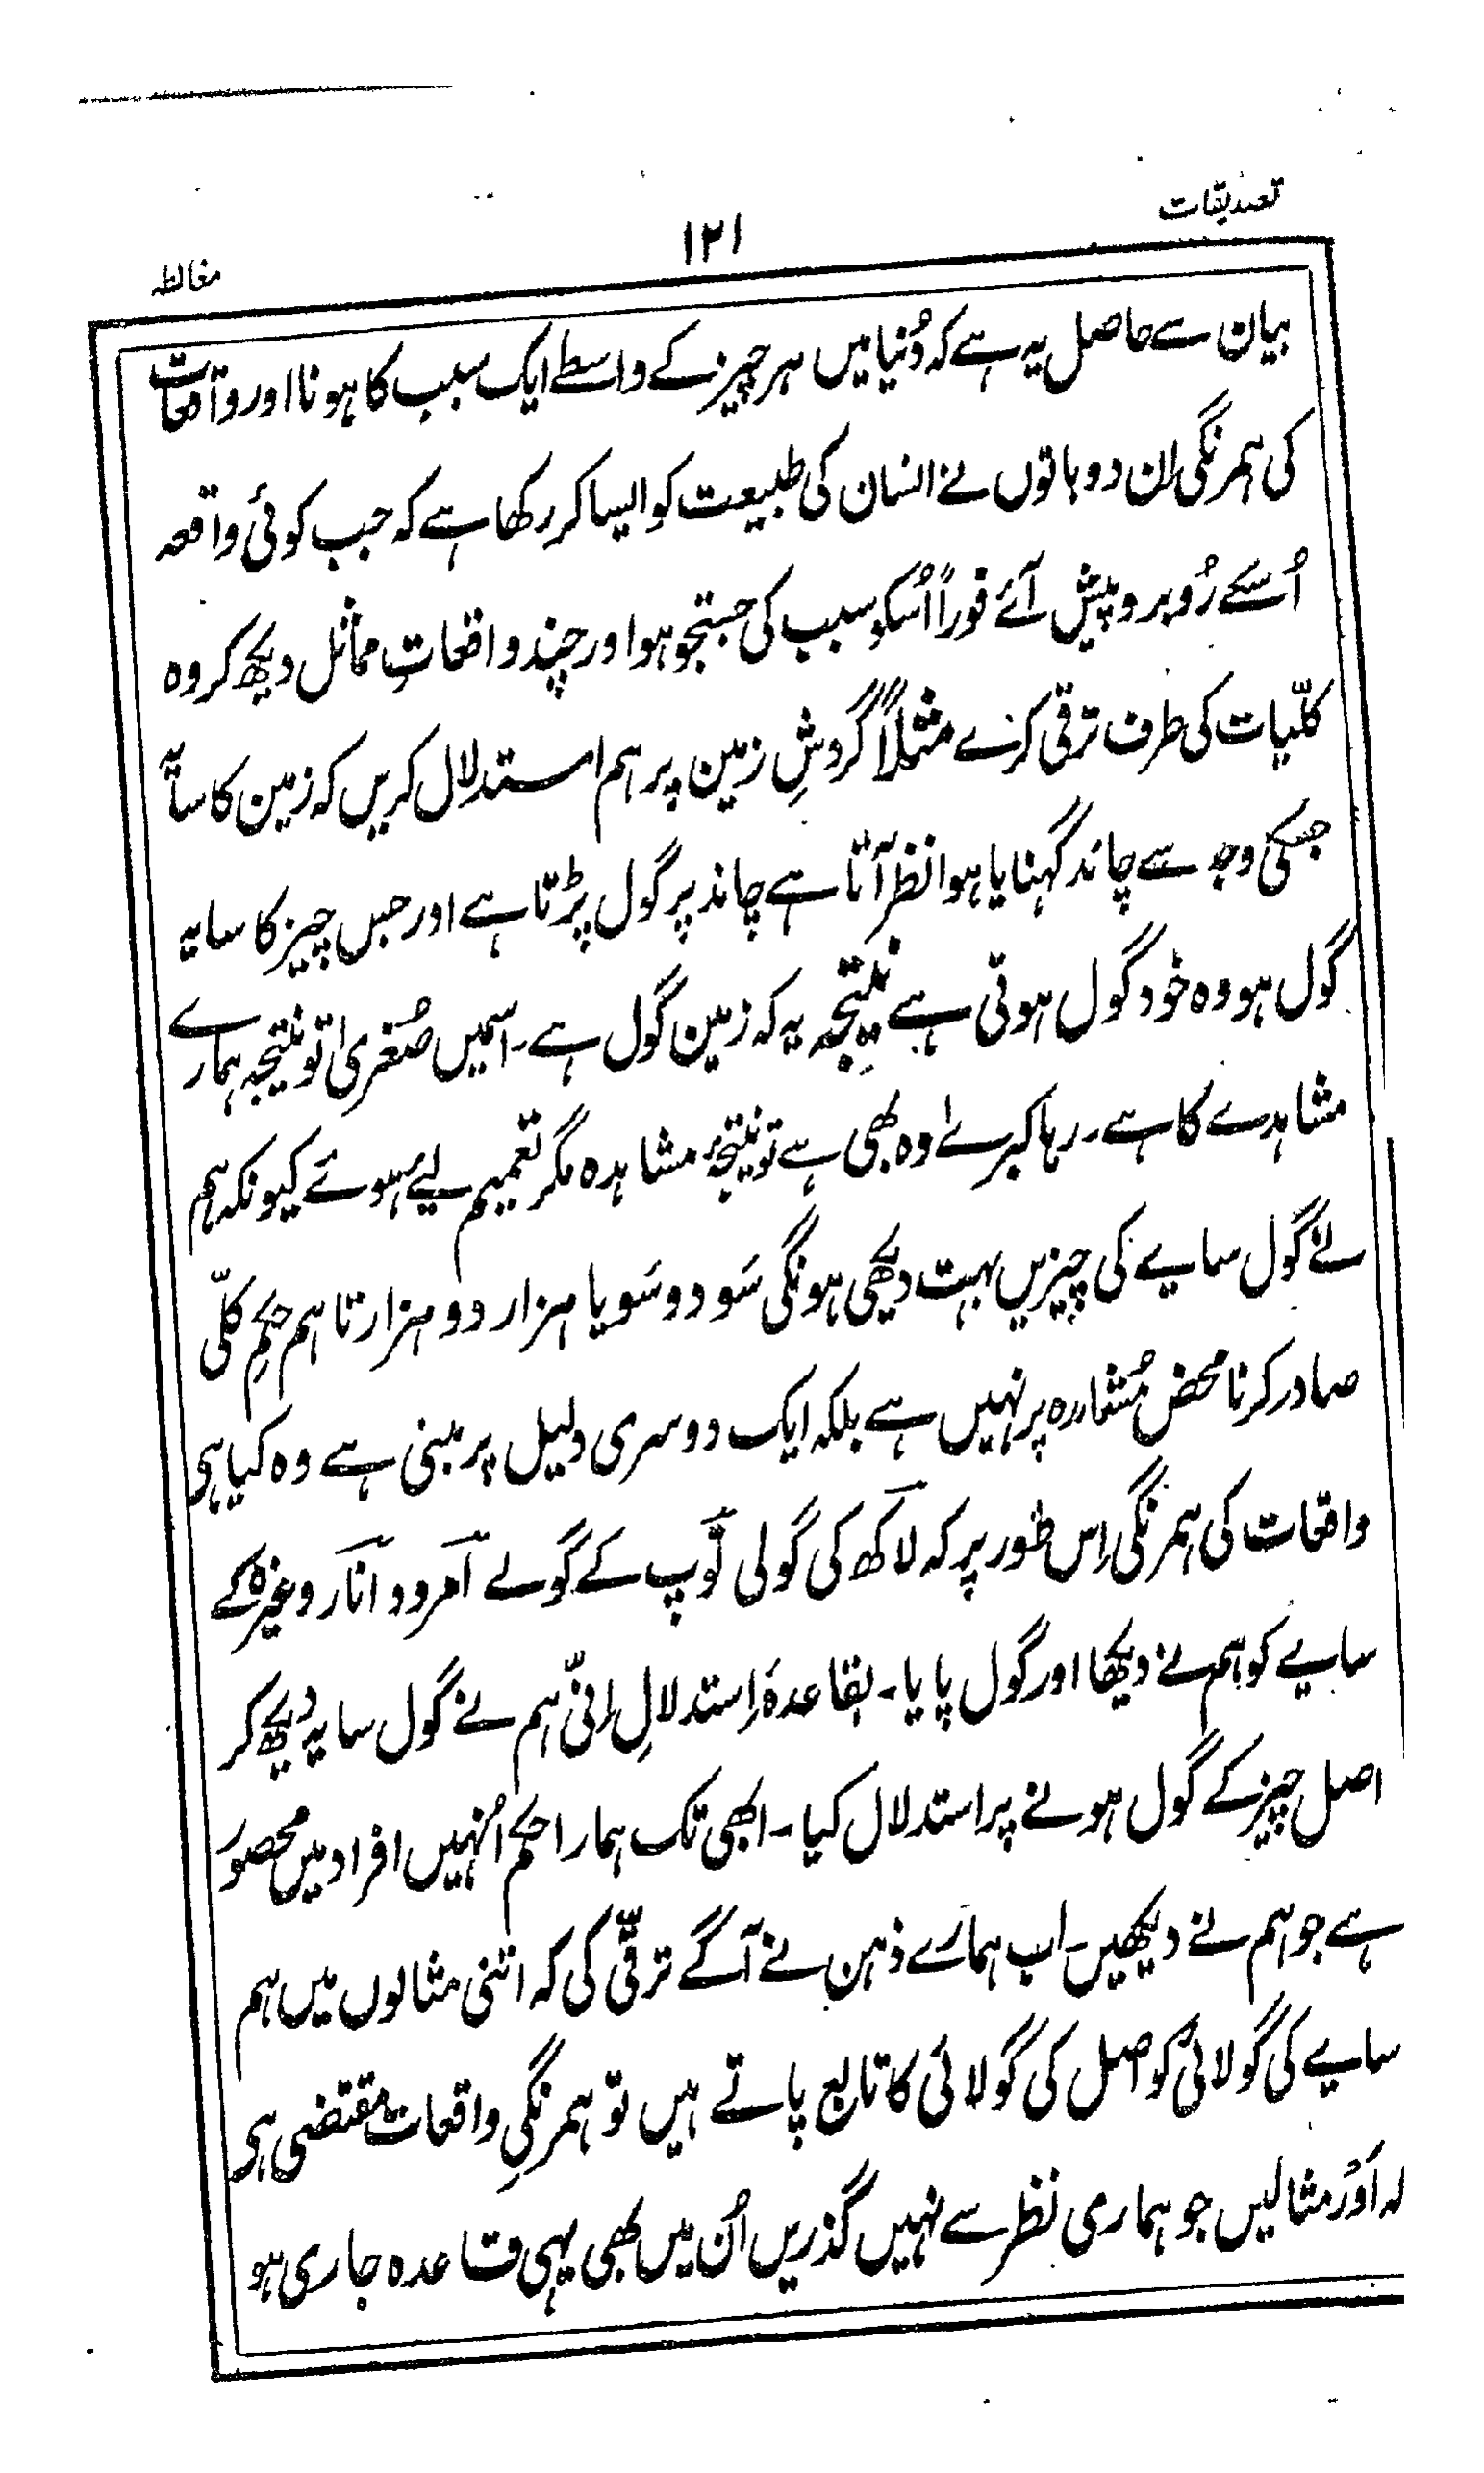 تصدیقات
۱۲۱
مغالطہ
بیان سے حاصل یہ ہے کہ دُنیا میں ہر چیز کے واسطے ایک سبب کا ہونا اور واقعات
کی ہمرنگی اِن دو باتوں نے انسان کی طبیعت کو ایسا کر رکھا ہے کہ جب کوئی واقعہ
اُسکے رُوبرو پیش آئے فوراً اُسکو سبب کی جستجو ہو اور چند واقعاتِ مماثل دیکھ کر وہ
کلّیات کی طرف ترقی کرے مثلاً گردشِ زمین پر ہم استدلال کریں کہ زمین کا سایہ
جسکی وجہ سے چاند گہنایا ہوا نظر آتا ہے چاند پر گول پڑتا ہے اور جس چیز کا سایہ
گول ہو وہ خود گول ہوتی ہے نتیجہ یہ کہ زمین گول ہے۔ اسمیں صُغریٰ تو نتیجہ ہمارے
مشاہدے کا ہے۔ رہا کبرےٰ وہ بھی ہے تو نتیجۂ مشاہدہ مگر تعمیم لیے ہوئے کیونکہ ہم
نے گول سایے کی چیزیں بہت دیکھی ہونگی سَو دو سَو یا ہزار دو ہزار تاہم حکمِ کلّی
صادر کرنا محض مُشاہدہ پر نہیں ہے بلکہ ایک دوسری دلیل پر مبنی ہے وہ کیا ہی
واقعات کی ہمرنگی اِس طور پر کہ لاکھ کی گولی توپ کے گولے امرود انار وغیرہ کے
سایے کو ہم نے دیکھا اور گول پایا۔ بقاعدۂ اِستدلالِ اِنّی ہم نے گول سایہ دیکھ کر
اصل چیز کے گول ہونے پر استدلال کیا۔ ابھی تک ہمارا حکم اُنہیں افراد میں محصور
ہے جو ہم نے دیکھیں۔ اب ہمارے ذہن نے آگے ترقّی کی کہ اتنی مثالوں میں ہم
سایے کی گولائی کو اصل کی گولائی کا تابع پاتے ہیں تو ہمرنگیِ واقعات مقتضی ہی
کہ اَوْر مثالیں جو ہماری نظر سے نہیں گذریں اُن میں بھی یہی قاعدہ جاری ہو